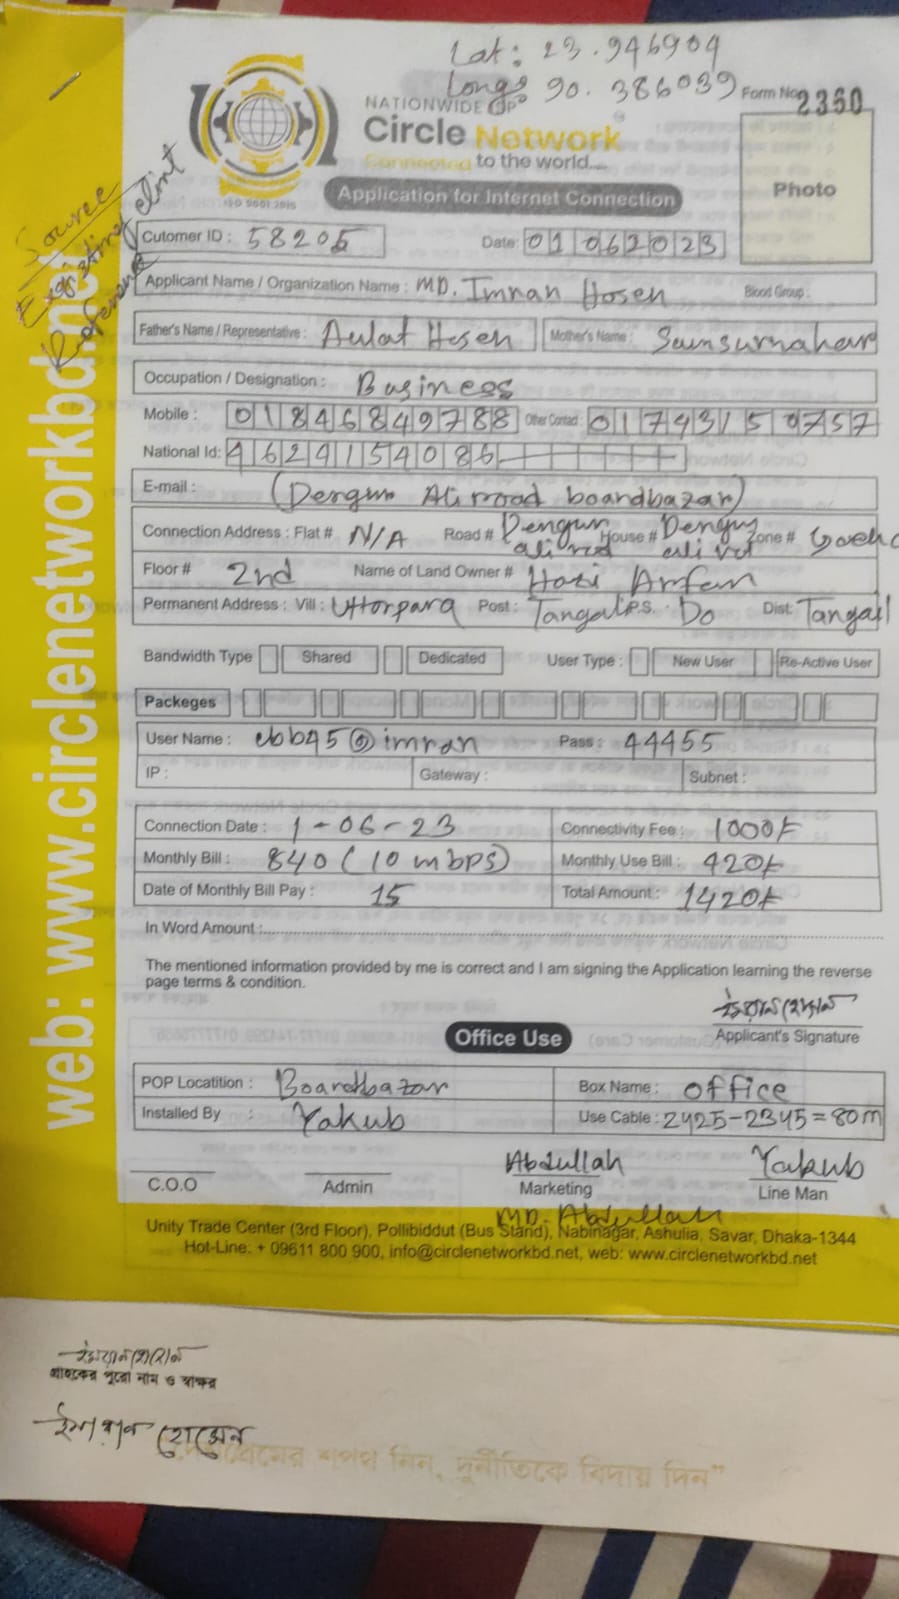 Lat: 23.946904
Longs 90.386039
Form No. 2360
NATIONWIDE ISP
Circle Network
Connected to the world...
ISO 9001:2015
Photo
Application for Internet Connection
Source
Existing clint
Reference
Cutomer ID : 58205 Date: 01062023
Applicant Name / Organization Name : MD. Imran Hosen Blood Group :
Father's Name / Representative : Aulat Hosen Mother's Name : Samsurnahar
Occupation / Designation : Business
Mobile : 01846849788 Other Contact : 01743150757
National Id: 4624154086
E-mail : (Dergun Ali road boardbazar)
Connection Address : Flat # N/A Road # Dengun ali rod House # Zone #
Floor # 2nd Name of Land Owner # Hazi Arfan
Permanent Address : Vill : Uttorpara Post : Tangail P.S. : Do Dist: Tangail
Bandwidth Type Shared Dedicated User Type : New User Re-Active User
Packeges
User Name : cbb45@imran Pass : 44455
IP : Gateway : Subnet :
Connection Date : 1-06-23 Connectivity Fee : 1000/-
Monthly Bill : 840 (10 mbps) Monthly Use Bill : 420/-
Date of Monthly Bill Pay : 15 Total Amount : 1420/-
In Word Amount :
The mentioned information provided by me is correct and I am signing the Application learning the reverse
page terms & condition.
Applicant's Signature
Office Use
POP Locatition : Boardbazar Box Name : office
Installed By : Yakub Use Cable : 2425-2345=80m
Abdullah Yakub
C.O.O Admin Marketing Line Man
MD. Abdullah
Unity Trade Center (3rd Floor), Pollibiddut (Bus Stand), Nabinagar, Ashulia, Savar, Dhaka-1344
Hot-Line: + 09611 800 900, info@circlenetworkbd.net, web: www.circlenetworkbd.net
web: www.circlenetworkbd.net
গ্রাহকের পুরো নাম ও স্বাক্ষর
ইমরান হোসেন
শপথ নিন, দুর্নীতিকে বিদায় দিন”